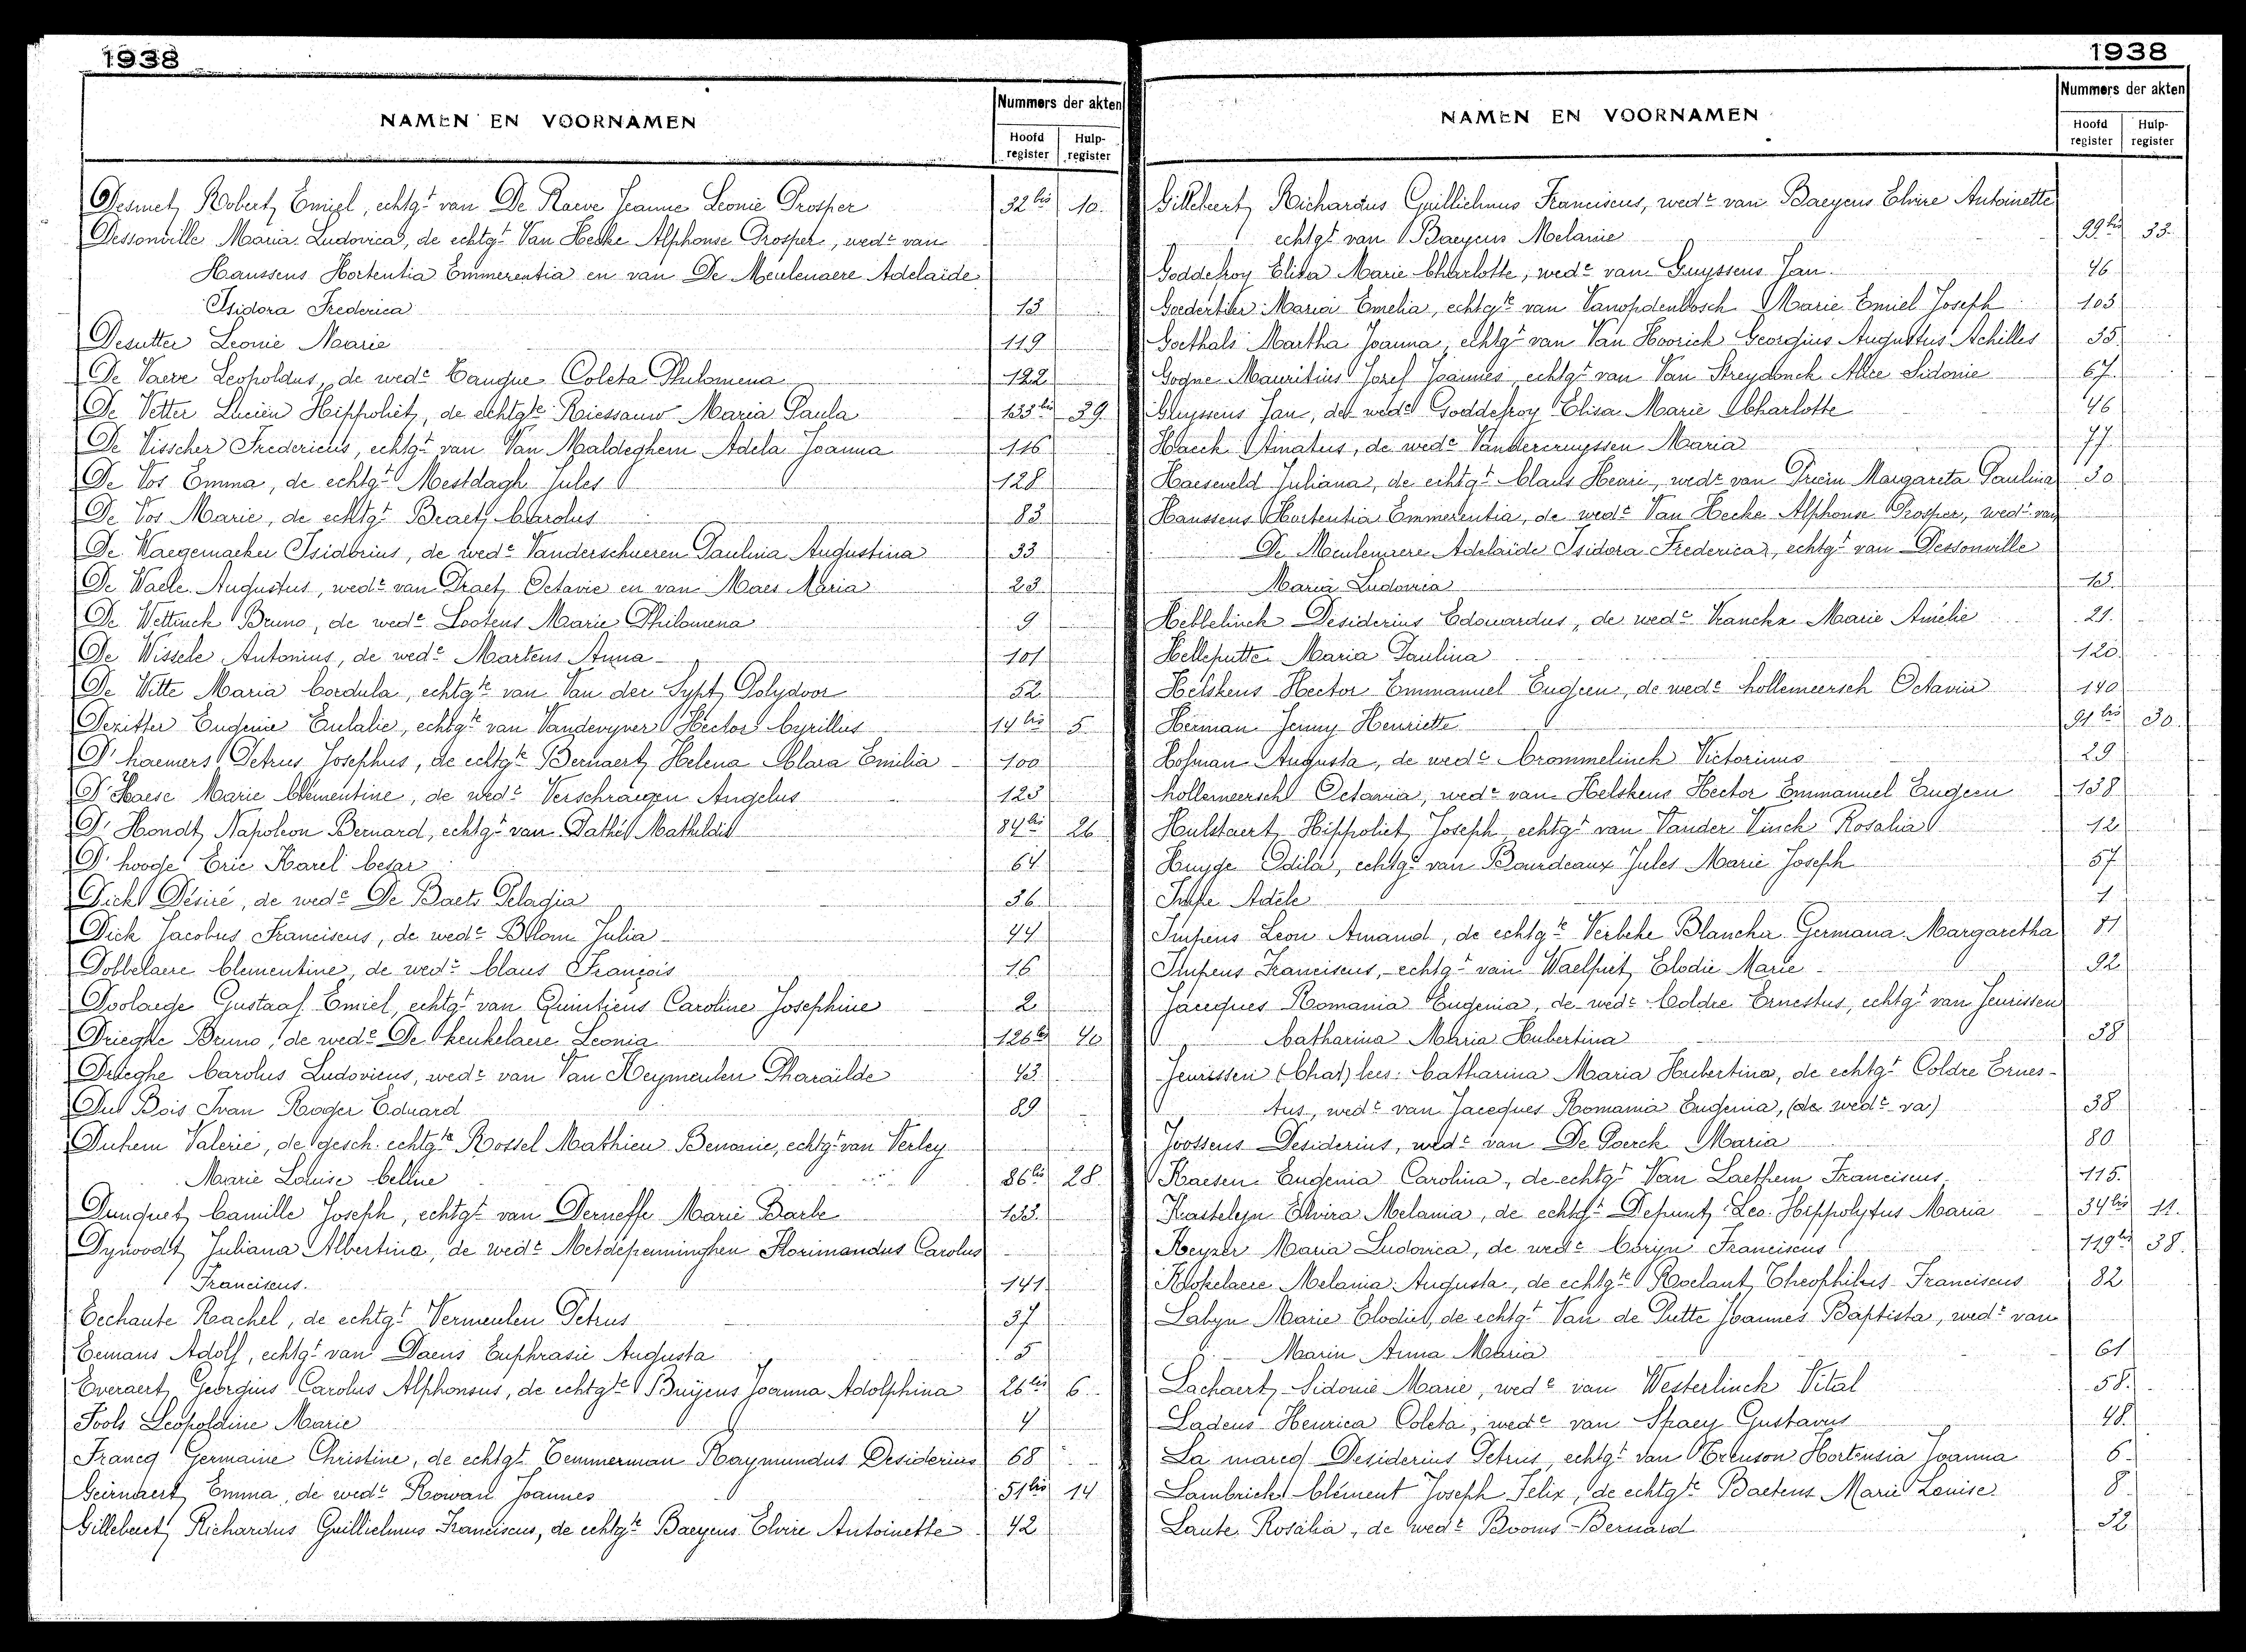 1938
NAMEN EN VOORNAMEN
Nummers der akten
Hoofd register Hulp-register
Desmet, Robert, Emiel, echtgt van De Raeve Jeanne Leonie Prosper 32bis 10.
Dessonville Maria Ludovica, de echtgt Van Hecke Alphonse Prosper, wedr van
Haussens Hortentia Emmerentia en van De Meulenaere Adelaïde
Isidora Frederica 13
Desutter Leonie Marie 119
De Vaere Leopoldus, de wede Cauque Coleta Philomena 122
De Vetter Lucien Hippoliet, de echtgte Riessauw Maria Paula 123bis 39
De Visscher Fredericus, echtgt van Van Maldeghem Adela Joanna 116
De Vos Emma, de echtgt Mestdagh Jules 128
De Vos Marie, de echtgt Braet, Carolus 83
De Waegemaeker Isidorius, de wede Vanderschueren Paulina Augustina 33
De Waele Augustus, wedr van Praet, Octavie en van Maes Maria 23
De Wettinck Bruno, de wede Lootens Marie Philomena 9
De Wissele Antonius, de wede Martens Anna 101
De Witte Maria Cordula, echtgte van Van der Sypt, Polydoor 52
Dezitter Eugenie Eulalie, echtgte van Vandevyver Hector Cyrillus 14bis 5
D'haemers Petrus Josephus, de echtgte Bernaert, Helena Clara Emilia 100
D'Haese Marie Clementine, de wedr Verschraegen Angelus 125
D'Hondt, Napoleon Bernard, echtgt van Dathie Mathildis 84bis 26
D'hooge Eric Karel Cesar 64
Dick Désiré, de wede De Baets Pelagia 36
Dick Jacobus Franciscus, de wede Blom Julia 44
Dobbelaere Clementine, de wedr Claus François 16
Doolaege Gustaaf Emiel, echtgt van Quinticus Caroline Josephine 2
Drieghe Bruno, de wede De Keukelaere Leonia 126bis 40
Drieghe Carolus Ludovicus, wedr van Van Heymeulen Pharaïlde 43
Du Bois Ivan Roger Eduard 89
Duhem Valerie, de gesch. echtgte Rossel Mathieu Benonie, echtgt van Verley
Marie Louise Celine 86bis 28.
Dunquet, Camille Joseph, echtgt van Derneffe Marie Barbe 133.
Dynoodt, Juliana Albertina, de wedr Metdepenninghen Florimandus Carolus
Franciscus. 141
Eechaute Rachel, de echtgt Vermeulen Petrus 37
Eemans Adolf, echtgt van Daens Euphrasie Augusta 5
Everaert, Georgius Carolus Alphonsus, de echtgte Buijens Joanna Adolphina 26bis 6.
Fools Leopoldine Marie 4
Francq Germaine Christine, de echtgt Temmerman Raymundus Desiderius 68
Geirnaert, Emma, de wedr Rowan Joannes 51bis 14
Gillebert, Richardus Guillielmus Franciscus, de echtgte Baeyens Elvire Antoinette 42
1938
NAMEN EN VOORNAMEN
Nummers der akten
Hoofd register Hulp-register
Gillebert, Richardus Guillielmus Franciscus, wedr van Baeyens Elvire Antoinette
echtgt van Baeyens Melanie 99bis 33.
Goddefroy Elisa Marie Charlotte, wede van Gruyssens Jan. 46
Goedertier Maria Emelia, echtgte van Vanopdenbosch Marie Emiel Joseph 103
Goethals Martha Joanna, echtgt van Van Hoorick Georgius Augustus Achilles 35
Gogne Mauritius Jozef Joannes, echtgt van Van Streydonck Alice Sidonie 67.
Gruyssens Jan, de wede Goddefroy Elisa Marie Charlotte 46
Haeck Amatus, de wede Vandercruyssen Maria 77.
Haeseveld Juliana, de echtgt Claus Henri, wedr van Priem Margareta Paulina 30
Haussens Hortentia Emmerentia, de wedr Van Hecke Alphonse Prosper, wedr van
De Meulenaere Adelaïde Isidora Frederica, echtgt van Dessonville
Maria Ludovica 13.
Hebbelinck Desiderius Edouardus, de wede Vranckx Marie Amélie 21.
Helleputte Maria Paulina 120.
Helskens Hector Emmanuel Eugeen, de wede Hollemeersch Octavia 140
Herman Jenny Henriette 91bis 30.
Hofman Augusta, de wede Crommelinck Victorinus 29
Hollemeersch Octavia, wede van Helskens Hector Emmanuel Eugeen 138
Hulstaert, Hippoliet, Joseph, echtgt van Vander Vinck Rosalia 12
Huyge Odila, echtge van Bourdeaux Jules Marie Joseph 57
Adèle 1
Impens Leon Amand, de echtgte Verbeke Blancha Germana Margaretha 81
Impens Franciscus, echtgt van Waelput, Elodie Marie 92
Jacques Romania Eugenia, de wedr Coldre Ernestus, echtgt van Jeurissen
Catharina Maria Hubertina 38
Jeurissen (Chat) lees: Catharina Maria Hubertina, de echtgt Coldre Ernes-
tus, wedr van Jacques Romania Eugenia, (de wedr va) 38
Joossens Desiderius, wedr van De Poerck Maria 80
Kaesen Eugenia Carolina, de echtgt Van Laethem Franciscus 115.
Kasteleyn Elvira Melania, de echtgt Depunt, Leo Hippolytus Maria 34bis 11.
Keyzer Maria Ludovica, de wedr Coryn Franciscus 119bis 38.
Klokelaere Melania Augusta, de echtgte Roelant, Theophilus Franciscus 82
Labyn Marie Elodie, de echtgt Van de Putte Joannes Baptista, wedr van
Marin Anna Maria 61
Lachaert, Sidonie Marie, wede van Westerlinck Vital 58.
Ladens Henrica Coleta, wede van Spaey Gustavus 48.
La marcq Desiderius Petrus, echtgt van Hortensia Joanna 6.
Lambricht Clément Joseph Felix, de echtgte Baetens Marie Louise 8
Laute Rosalia, de wedr Booms Bernard 32